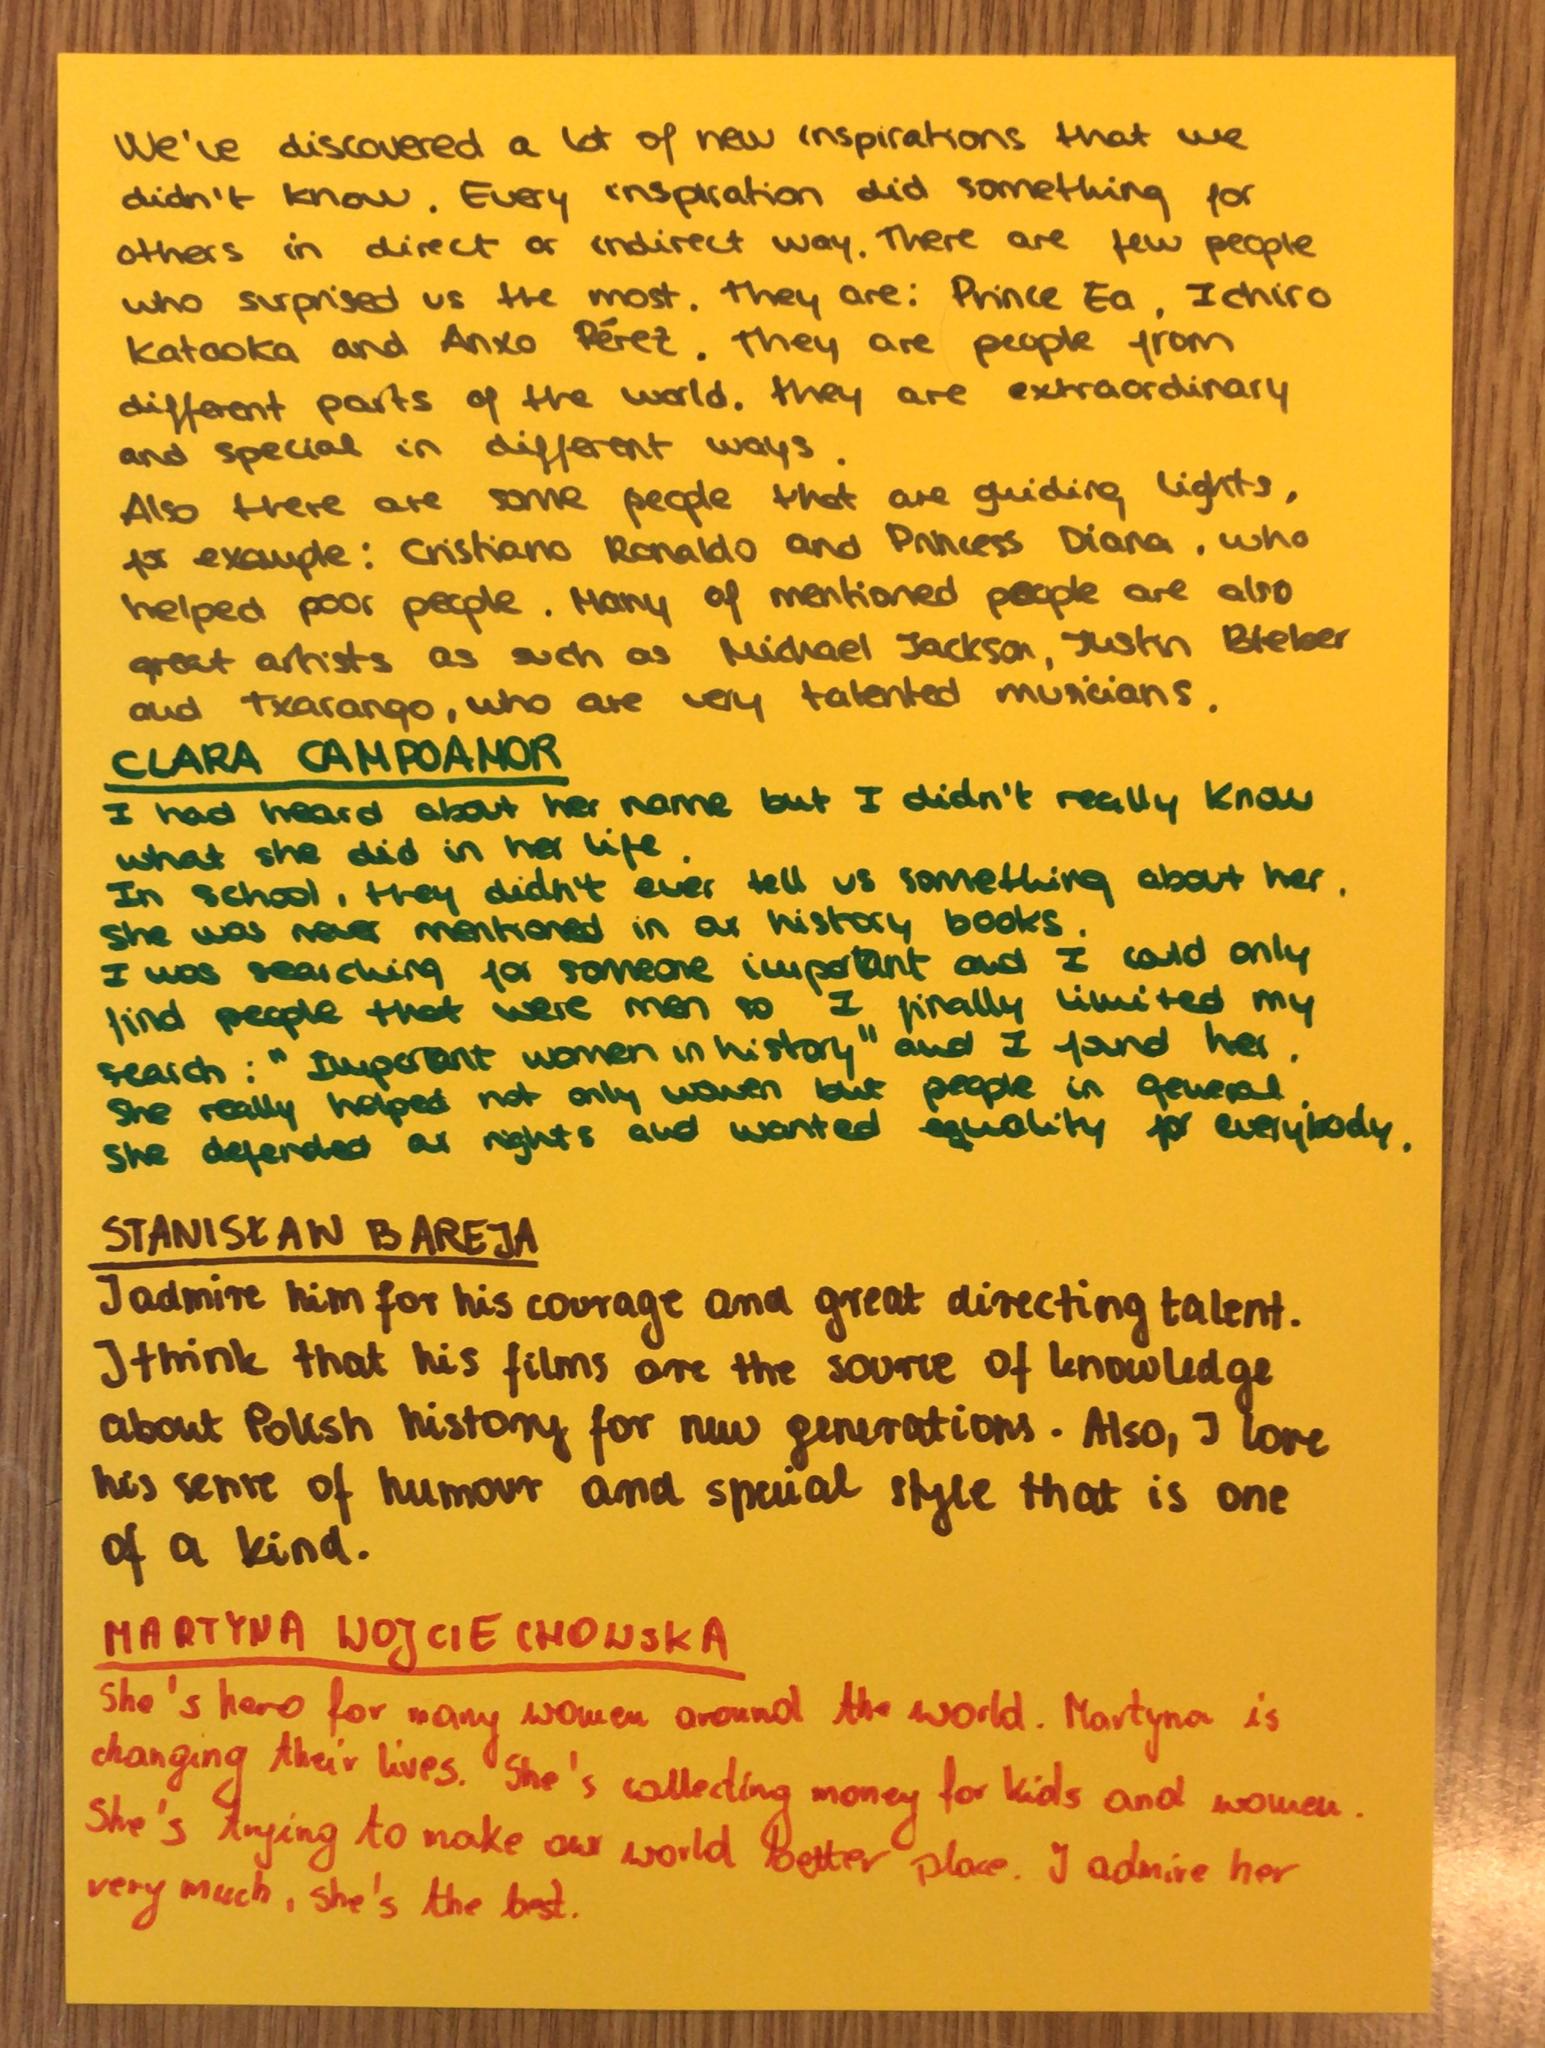 We've discovered a lot of new inspirations that we
didn't know. Every inspiration did something for
others in direct or indirect way. There are few people
who surprised us the most. They are: Prince Ea, Ichiro
Kataoka and Anxo Pérez. They are people from
different parts of the world. They are extraordinary
and special in different ways.
Also there are some people that are guiding lights,
for example: Cristiano Ronaldo and Princess Diana, who
helped poor people. Many of mentioned people are also
great artists as such as Michael Jackson, Justin Bieber
and Txarango, who are very talented musicians.
CLARA CAMPOAMOR
I had heard about her name but I didn't really know
what she did in her life.
In school, they didn't ever tell us something about her.
She was never mentioned in our history books.
I was searching for someone important and I could only
find people that were men so I finally limited my
search: "Important women in history" and I found her.
She really helped not only women but people in general.
She defended our rights and wanted equality for everybody.
STANISŁAW BAREJA
I admire him for his courage and great directing talent.
I think that his films are the source of knowledge
about Polish history for new generations. Also, I love
his sense of humour and special style that is one
of a kind.
MARTYNA WOJCIECHOWSKA
She's hero for many women around the world. Martyna is
changing their lives. She's collecting money for kids and women.
She's trying to make our world better place. I admire her
very much, she's the best.